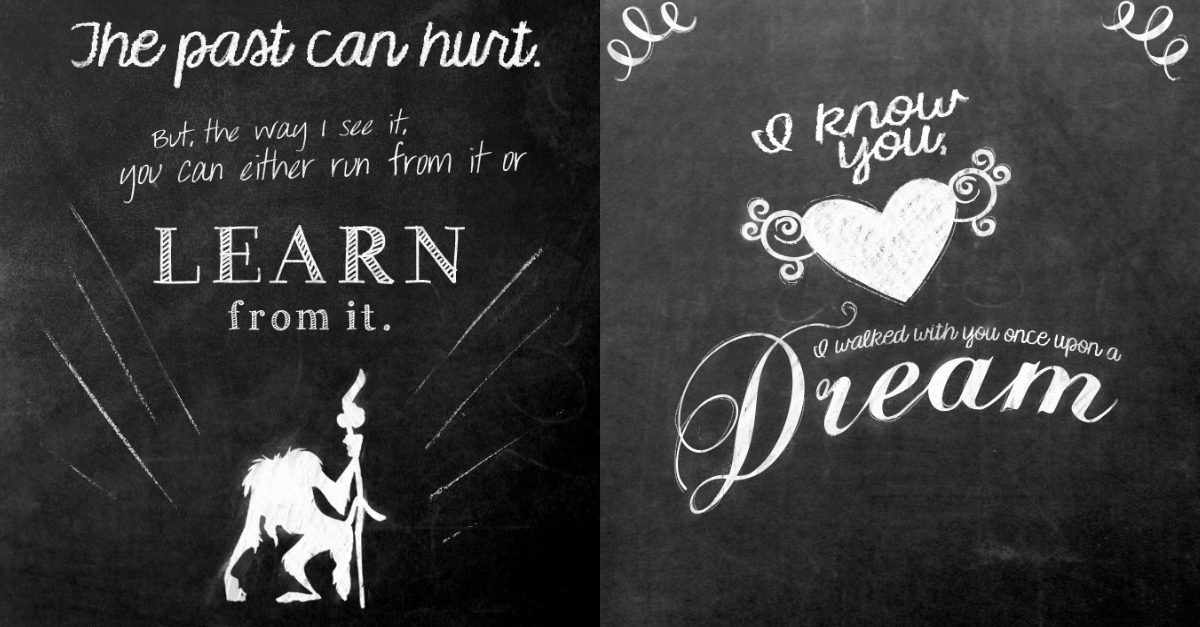 The past can hurt.
But, the way I see it,
you can either run from it or
LEARN
from it.
I know
you,
I walked with you once upon a
Dream